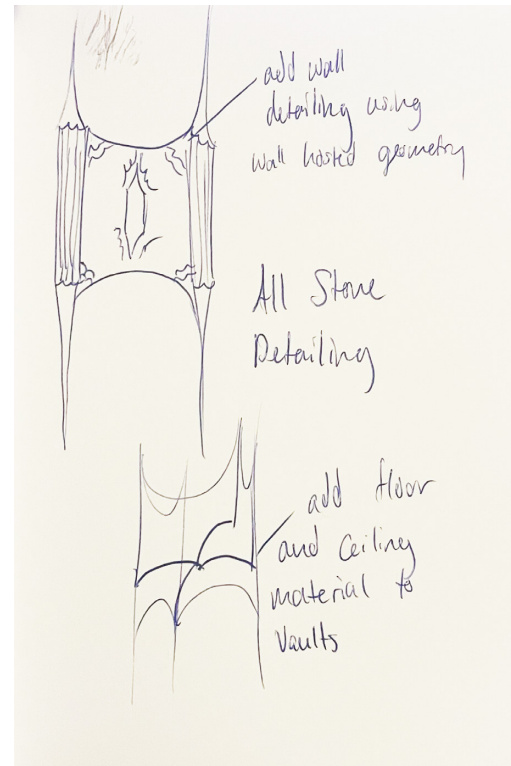 add wall
detailing using
wall hosted geometry
All Stone
Detailing
add floor
and ceiling
material to
vaults